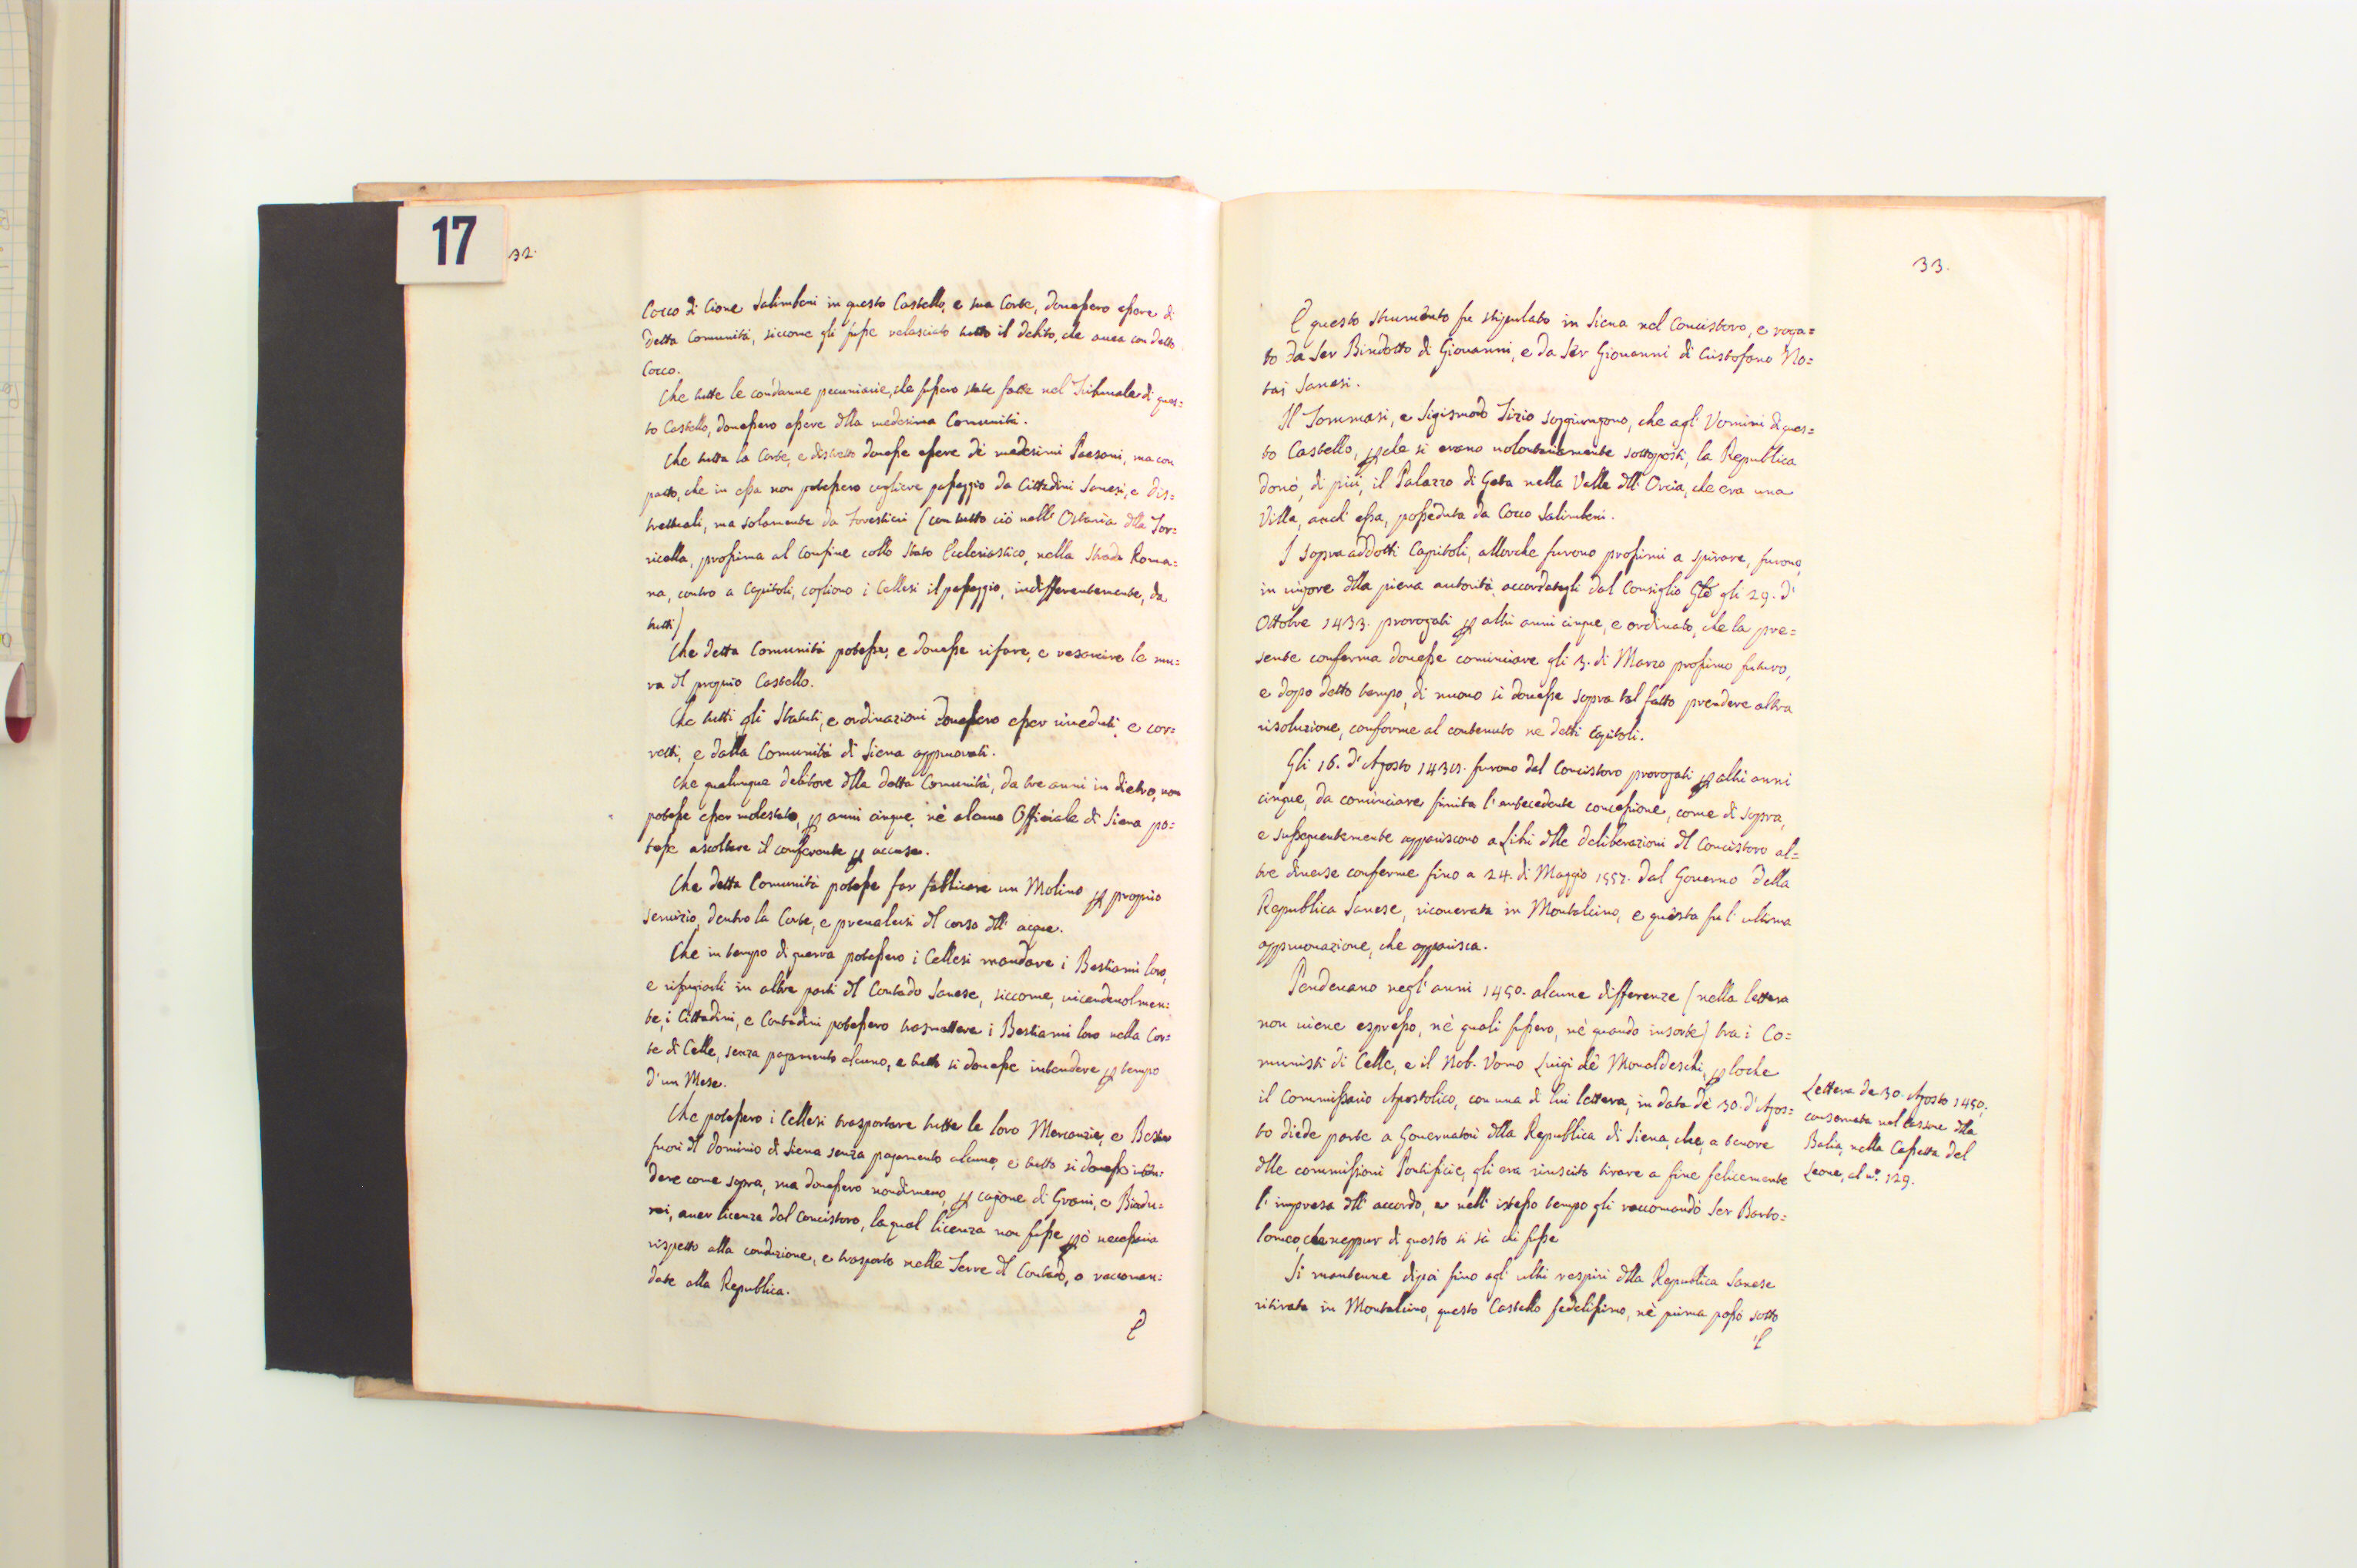 17
32.
Cocco di Cione Salimbeni in questo Castello, e sua Corte, douessero essere di
detta Comunità, siccome gli fusse relasciato tutto il debito, che auea con detto
Cocco.
Che tutte le condanne pecuniarie, che fussero state fatte nel Tribunale di ques=
to Castello, douessero essere dlla medesima Comunità.
Che tutta la Corte, e distretto douesse essere de medesimi Paesani, ma con
patto, che in essa non potessero cogliere passaggio da Cittadini Sanesi, e dis=
trettuali, ma solamente da Forestieri (con tutto ciò nell' Osteria dlla Tor=
ricella, prossima al Confine collo Stato Ecclesiastico, nella Strada Roma=
na, contro a Capitoli, cogliono i Cellesi il passaggio, indifferentemente, da
tutti)
Che detta Comunità potesse, e douesse rifare, e resarcire le mu=
ra dl proprio Castello.
Che tutti gli Statuti, e ordinazioni douessero esser riueduti, e cor=
retti, e dalla Comunità di Siena approuati.
Che qualunque debitore dlla detta Comunità, da tre anni in dietro, non
potesse esser molestato, p anni cinque, nè alcuno Offiziale di Siena po=
tesse ascoltare il conferente p accusa.
Che detta Comunità potesse far fabbricare un Molino p proprio
seruizio, dentro la Corte, e preualersi dl corso dll' acque.
Che in tempo di guerra potessero i Cellesi mandare i Bestiami loro,
e rifugiarli in altre parti dl Contado Sanese, siccome, uicendeuolmen=
te, i Cittadini, e Contadini potessero trasmettere i Bestiami loro nella Cor=
te di Celle, senza pagamento alcuno, e tutto si douesse intendere p tempo
d'un Mese.
Che potessero i Cellesi trasportare tutte le loro Mercanzie, e Bestie
fuori dl dominio di Siena senza pagamento alcuno, e tutto si douesse inten=
dere come sopra, ma douessero nondimeno, p cagione di Grani, e Biadu=
mi, auer licenza dal Concistoro, la qual licenza non fusse pò necessaria
rispetto alla condizione, e trasporto nelle Terre dl Contado, o raccoman=
date alla Republica.
E
33.
E questo strumento fu stipulato in Siena nel Concistoro, e roga=
to da Ser Bindotto di Giouanni, e da Ser Giouanni di Cristofano No=
tai Sanesi.
Il Tommasi, e Sigismondo Tizio soggiungono, che agl' Uomini di ques=
to Castello, pche si erano uolontariamente sottoposti, la Republica
donò, di più, il Palazzo di Geta nella Valle dll' Orcia, che era una
Villa, anch' essa, posseduta da Cocco Salimbeni.
I sopra addotti Capitoli, allorche furono prossimi a spirare, furono,
in uigore dlla piena autorità accordatagli dal Consiglio Gle gli 29. d'
Ottobre 1433. prorogati p altri anni cinque, e ordinato, che la pre=
sente conferma douesse cominciare gli 3. di Marzo prossimo futuro,
e dopo detto tempo, di nuouo si douesse sopra tal fatto prendere altra
risoluzione, conforme al contenuto ne detti Capitoli.
Gli 16. d' Agosto furono dal Concistoro prorogati p altri anni
cinque, da cominciare finita l' antecedente concessione, come di sopra,
e susseguentemente appariscono a Libri dlle deliberazioni dl Concistoro al=
tre diuerse conferme fino a 24. di Maggio 1557. dal Gouerno della
Republica Sanese, ricouerata in Montalcino, e questa fu l' ultima
approuazione, che apparisca.
Pendeuano negl' anni 1450. alcune differenze (nella lettera
non uiene espresso, nè quali fussero, nè quando insorte) tra i Co=
munisti di Celle, e il Nob. Uomo Luigi de Monaldeschi, p loche
il Commissario Apostolico, con una di lui lettera, in data de 30. d' Agos=
to diede parte a Gouernatori dlla Republica di Siena, che, a tenore
dlle commissioni Pontificie, gli era riuscito tirare a fine felicemente
l' impresa dll' accordo, e nell' istesso tempo gli raccomandò Ser Barto=
lomeo, che neppur di questo si sà chi fusse
Si mantenne dipoi fino agl' ultimi respiri dlla Republica Sanese
ritirata in Montalcino, questo Castello fedelissimo, nè prima passò sotto
l'
Lettera de 30. Agosto 1450.
conseruata nel Cassone dlla
Balia, nella Cassetta del
Leone, al n.º 129.